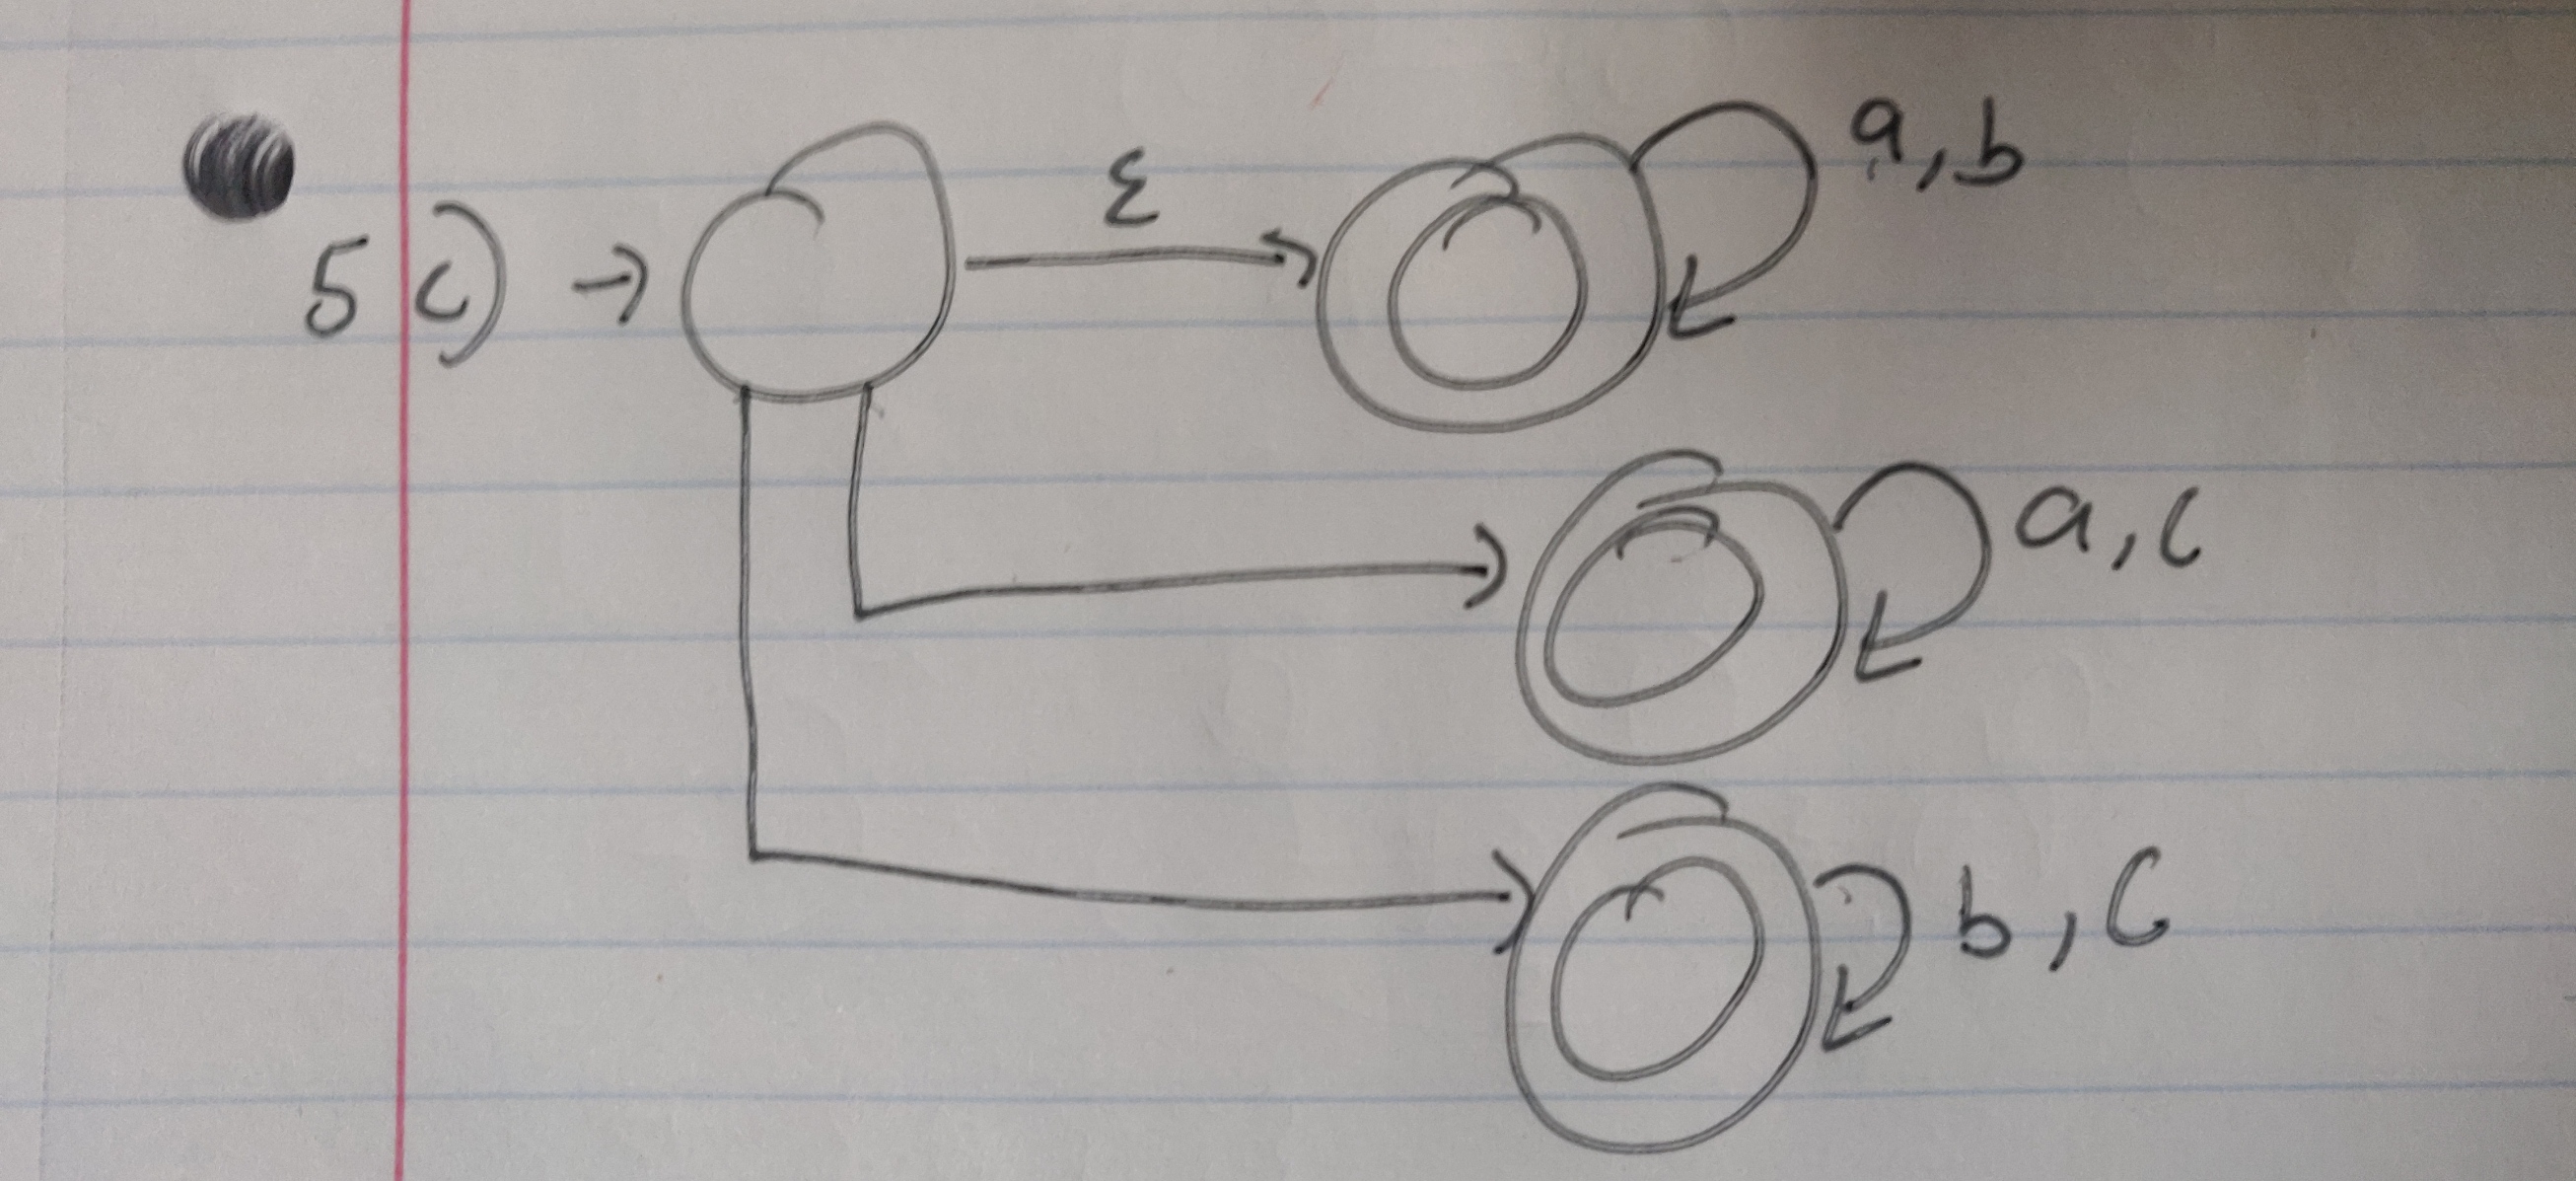 5 c) → ε a, b
a, c
b, c